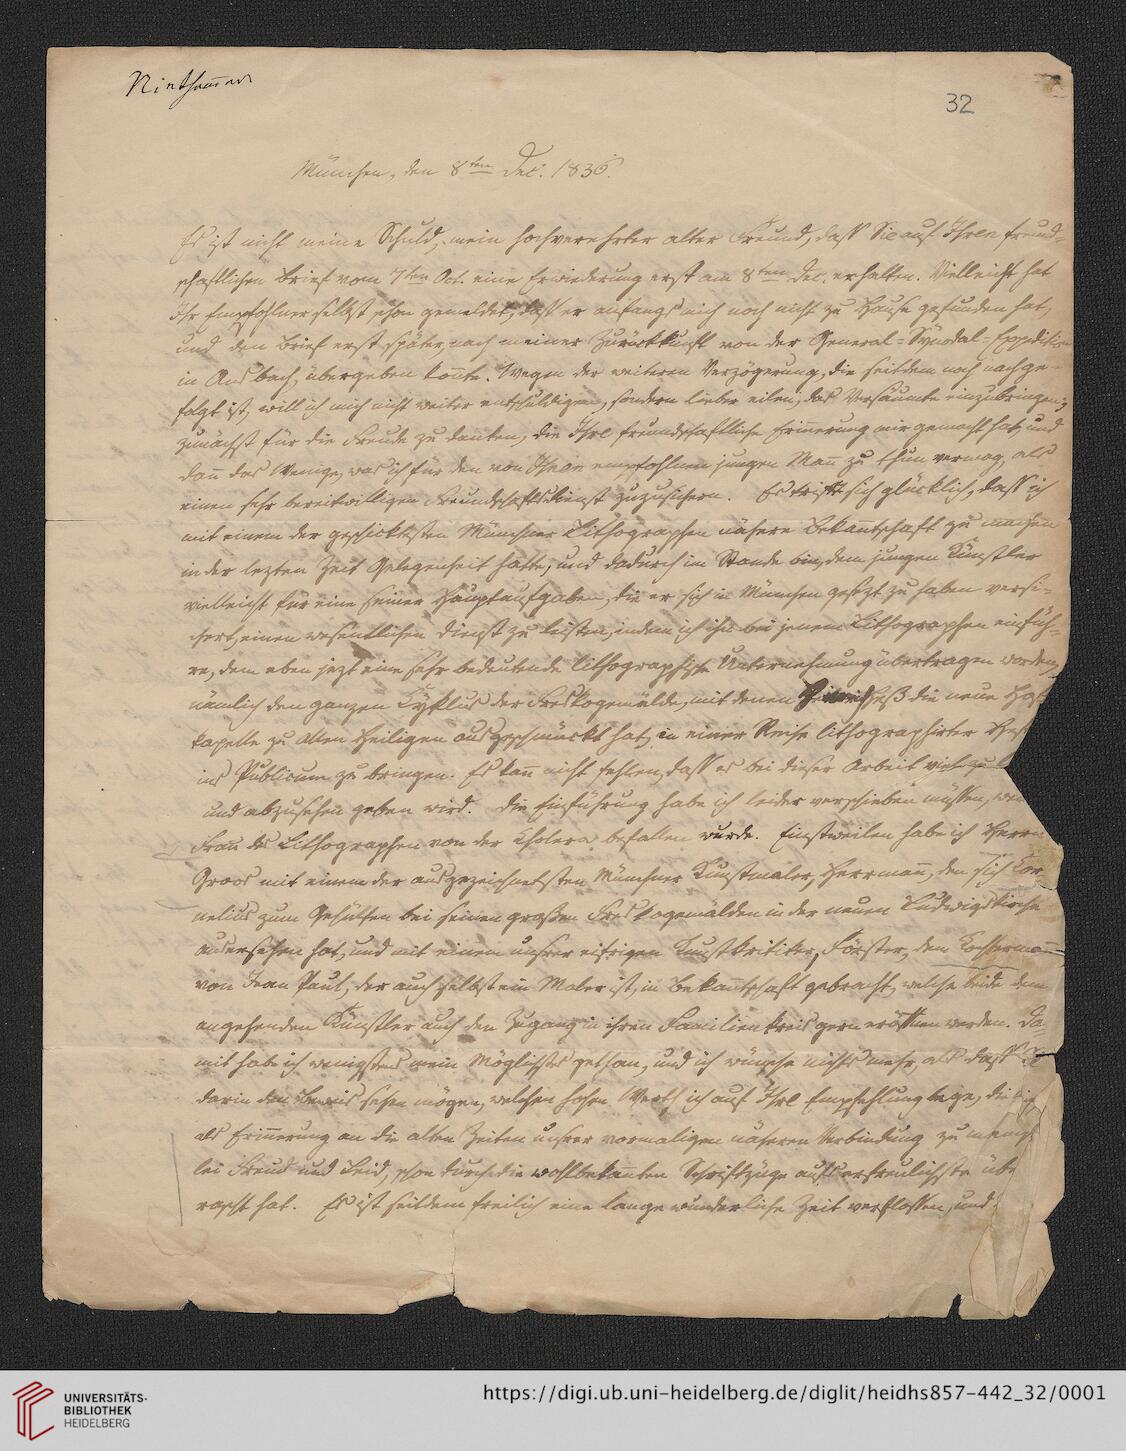 Niethammer
32
München, den 8ten Dec. 1836.
Es ist nicht meine Schuld, mein hochverehrter alter Freund, dass Sie auf Ihren freund-
schaftlichen Brief vom 7ten Oct. eine Erwiederung erst am 8ten Dec. erhalten. Vielleicht hat
Ihr Empfohlner selbst schon gemeldet, dass er anfangs mich noch nicht zu Hause gefunden hat,
und den Brief erst später, nach meiner Zurückkunft von der General-Synodal-Expedition
in Ansbach, übergeben konnte. Wegen der weiteren Verzögerung, die seitdem noch nachge-
folgt ist, will ich mich nicht weiter entschuldigen, sondern lieber eilen, das Versäumte einzubringen,
zunächst für die Freude zu danken, die Ihre freundschaftliche Erinnerung mir gemacht hat, und
dann das Wenige, was ich für den von Ihnen empfohlnen jungen Mann zu thun vermag, als
einen sehr bereitwilligen Freundschaftsdienst zuzusichern. Es trifft sich glücklich, dass ich
mit einem der geschicktesten Münchner Lithographen nähere Bekanntschaft zu machen
in der lezten Zeit Gelegenheit hatte, und dadurch im Stande bin, dem jungen Künstler
vielleicht für eine seiner Hauptaufgaben, die er sich in München gesezt zu haben versi-
chert, einen wesentlichen Dienst zu leisten, indem ich ihn bei jenem Lithographen einfüh-
re, dem eben jezt eine sehr bedeutende lithographische Unternehmung übertragen worden,
nämlich den ganzen Cyklus der Freskogemälde, mit denen Heinrich Heß die neue Hof
kapelle zu Allen Heiligen ausgeschmückt hat, in einer Reihe lithographirter
ins Publicum zu bringen. Es kann nicht fehlen, dass es bei dieser Arbeit viel zu
und abzusehen geben wird. Die Einführung habe ich leider verschieben müssen, 
Frau des Lithographen von der Cholera befallen wurde. Einstweilen habe ich Herrn
Groos mit einem der ausgezeichnetsten Münchner Kunstmaler, Herrmann, den sich Cor
nelius zum Gehülfen bei seinen großen Freskogemälden in der neuen Ludwigskirche
ausersehen hat, und mit einem unsrer eifrigen Kunstkritiker, Förster, dem
von Jean Paul, der auch selbst ein Maler ist, in Bekanntschaft gebracht, welche beide dem
angehenden Künstler auch den Zugang in ihren Familienkreis gern eröffnen werden. Da-
mit habe ich wenigstens mein Möglichstes gethan, und ich wünsche nichts mehr, als dass Sie
darin den Beweis sehen mögen, welchen hohen Werth ich auf Ihre Empfehlung lege, die
als Erinnerung an die alten Zeiten unsrer vormaligen näheren Verbindung zu manch
lei Freud und Leid, schon durch die wohlbekannten Schriftzüge aufs erfreulichste über
rascht hat. Es ist seitdem freilich eine lange wunderliche Zeit verflossen, und
UNIVERSITÄTS-
BIBLIOTHEK
HEIDELBERG
https://digi.ub.uni-heidelberg.de/diglit/heidhs857-442_32/0001